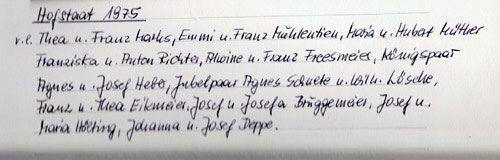 Hofstaat 1975
v.l. Thea u. Franz Marks, Emmi u. Franz Mühlentien, Maria u. Hubert Müther
Franziska u. Anton Richter, Alwine u. Franz Freesmeier, Königspaar
Agnes u. Josef Heber, Jubelpaar Agnes Schulte u. Wilh. Lösche,
Franz u. Thea Eikmeier, Josef u. Josefa Brüggemeier, Josef u.
Maria Hölting, Johanna u. Josef Deppe.